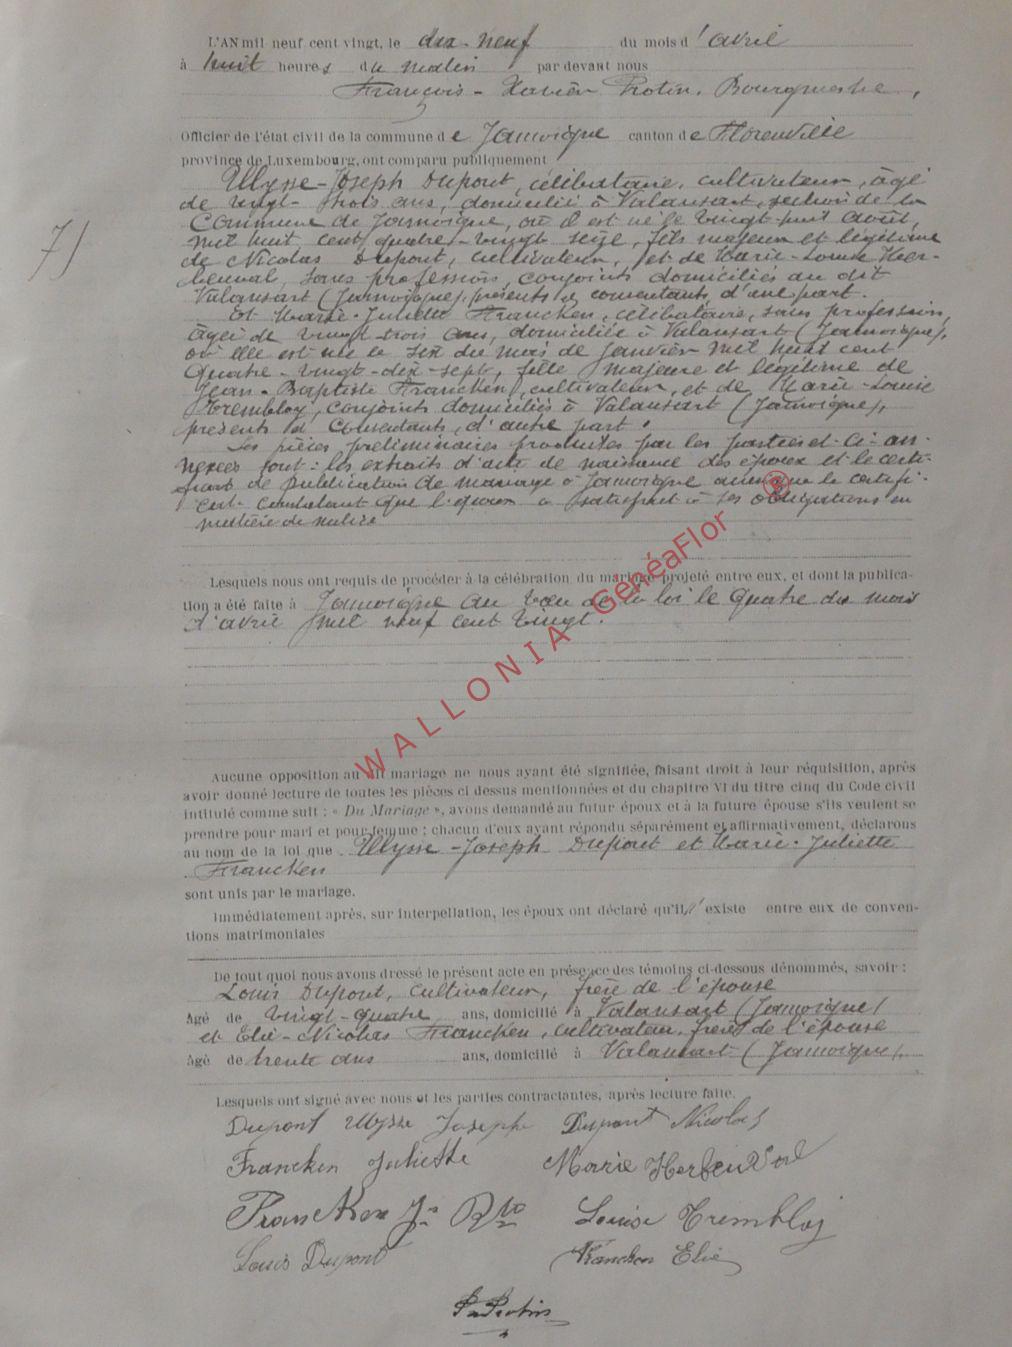 L'AN mil neuf cent vingt, le dix-neuf du mois d'avril
à huit heures du matin par devant nous
François-Xavier Protin, Bourgmestre,
Officier de l'état civil de la commune de Jamoigne canton de Florenville
province de Luxembourg, ont comparu publiquement
Ulysse-Joseph Dupont, célibataire, cultivateur, âgé
de vingt-trois ans, domicilié à Valansart, section de la
Commune de Jamoigne, où il est né le vingt-huit août,
mil huit cent quatre-vingt seize, fils majeur et légitime
de Nicolas Dupont, cultivateur, et de Marie-Louise Her-
beuval, sans profession, conjoints domiciliés au dit
Valansart (Jamoigne), présents et consentants, d'une part.
Et Marie-Juliette Francken, célibataire, sans profession,
âgée de vingt-trois ans, domiciliée à Valansart (Jamoigne),
où elle est née le six du mois de Janvier mil huit cent
quatre-vingt-dix-sept, fille majeure et légitime de
Jean-Baptiste Francken, cultivateur, et de Marie-Louise
Trembloy, conjoints domiciliés à Valansart (Jamoigne),
présents et Consentants, d'autre part.
7)
Les pièces préliminaires produites par les parties et ci-an-
nexées sont : les extraits d'acte de naissance des époux et le certi-
ficat de publication de mariage à Jamoigne ainsi que le certifi-
cat constatant que l'époux a satisfait à ses obligations en
matière de milice
Lesquels nous ont requis de procéder à la célébration du mariage projeté entre eux, et dont la publica-
tion a été faite à Jamoigne au vœu de la loi le quatre du mois
d'avril mil neuf cent vingt.
WALLONIA GenéaFlor ®
Aucune opposition au dit mariage ne nous ayant été signifiée, faisant droit à leur réquisition, après
avoir donné lecture de toutes les pièces ci dessus mentionnées et du chapitre VI du titre cinq du Code civil
intitulé comme suit : « Du Mariage », avons demandé au futur époux et à la future épouse s'ils veulent se
prendre pour mari et pour femme ; chacun d'eux ayant répondu séparément et affirmativement, déclarons
au nom de la loi que Ulysse-Joseph Dupont et Marie-Juliette
Francken
sont unis par le mariage.
Immédiatement après, sur interpellation, les époux ont déclaré qu'il n'existe entre eux de conven-
tions matrimoniales
De tout quoi nous avons dressé le présent acte en présence des témoins ci-dessous dénommés, savoir :
Louis Dupont, cultivateur, frère de l'épouse
Agé de vingt-quatre ans, domicilié à Valansart (Jamoigne)
et Elie-Nicolas Francken, cultivateur, frère de l'épouse
Agé de trente ans ans, domicilié à Valansart (Jamoigne).
Lesquels ont signé avec nous et les parties contractantes, après lecture faite.
Dupont Ulysse Joseph Dupont Nicolas
Francken Juliette Marie Herbeuval
Francken Jn Bte Louise Trembloy
Louis Dupont Francken Elie
Protin